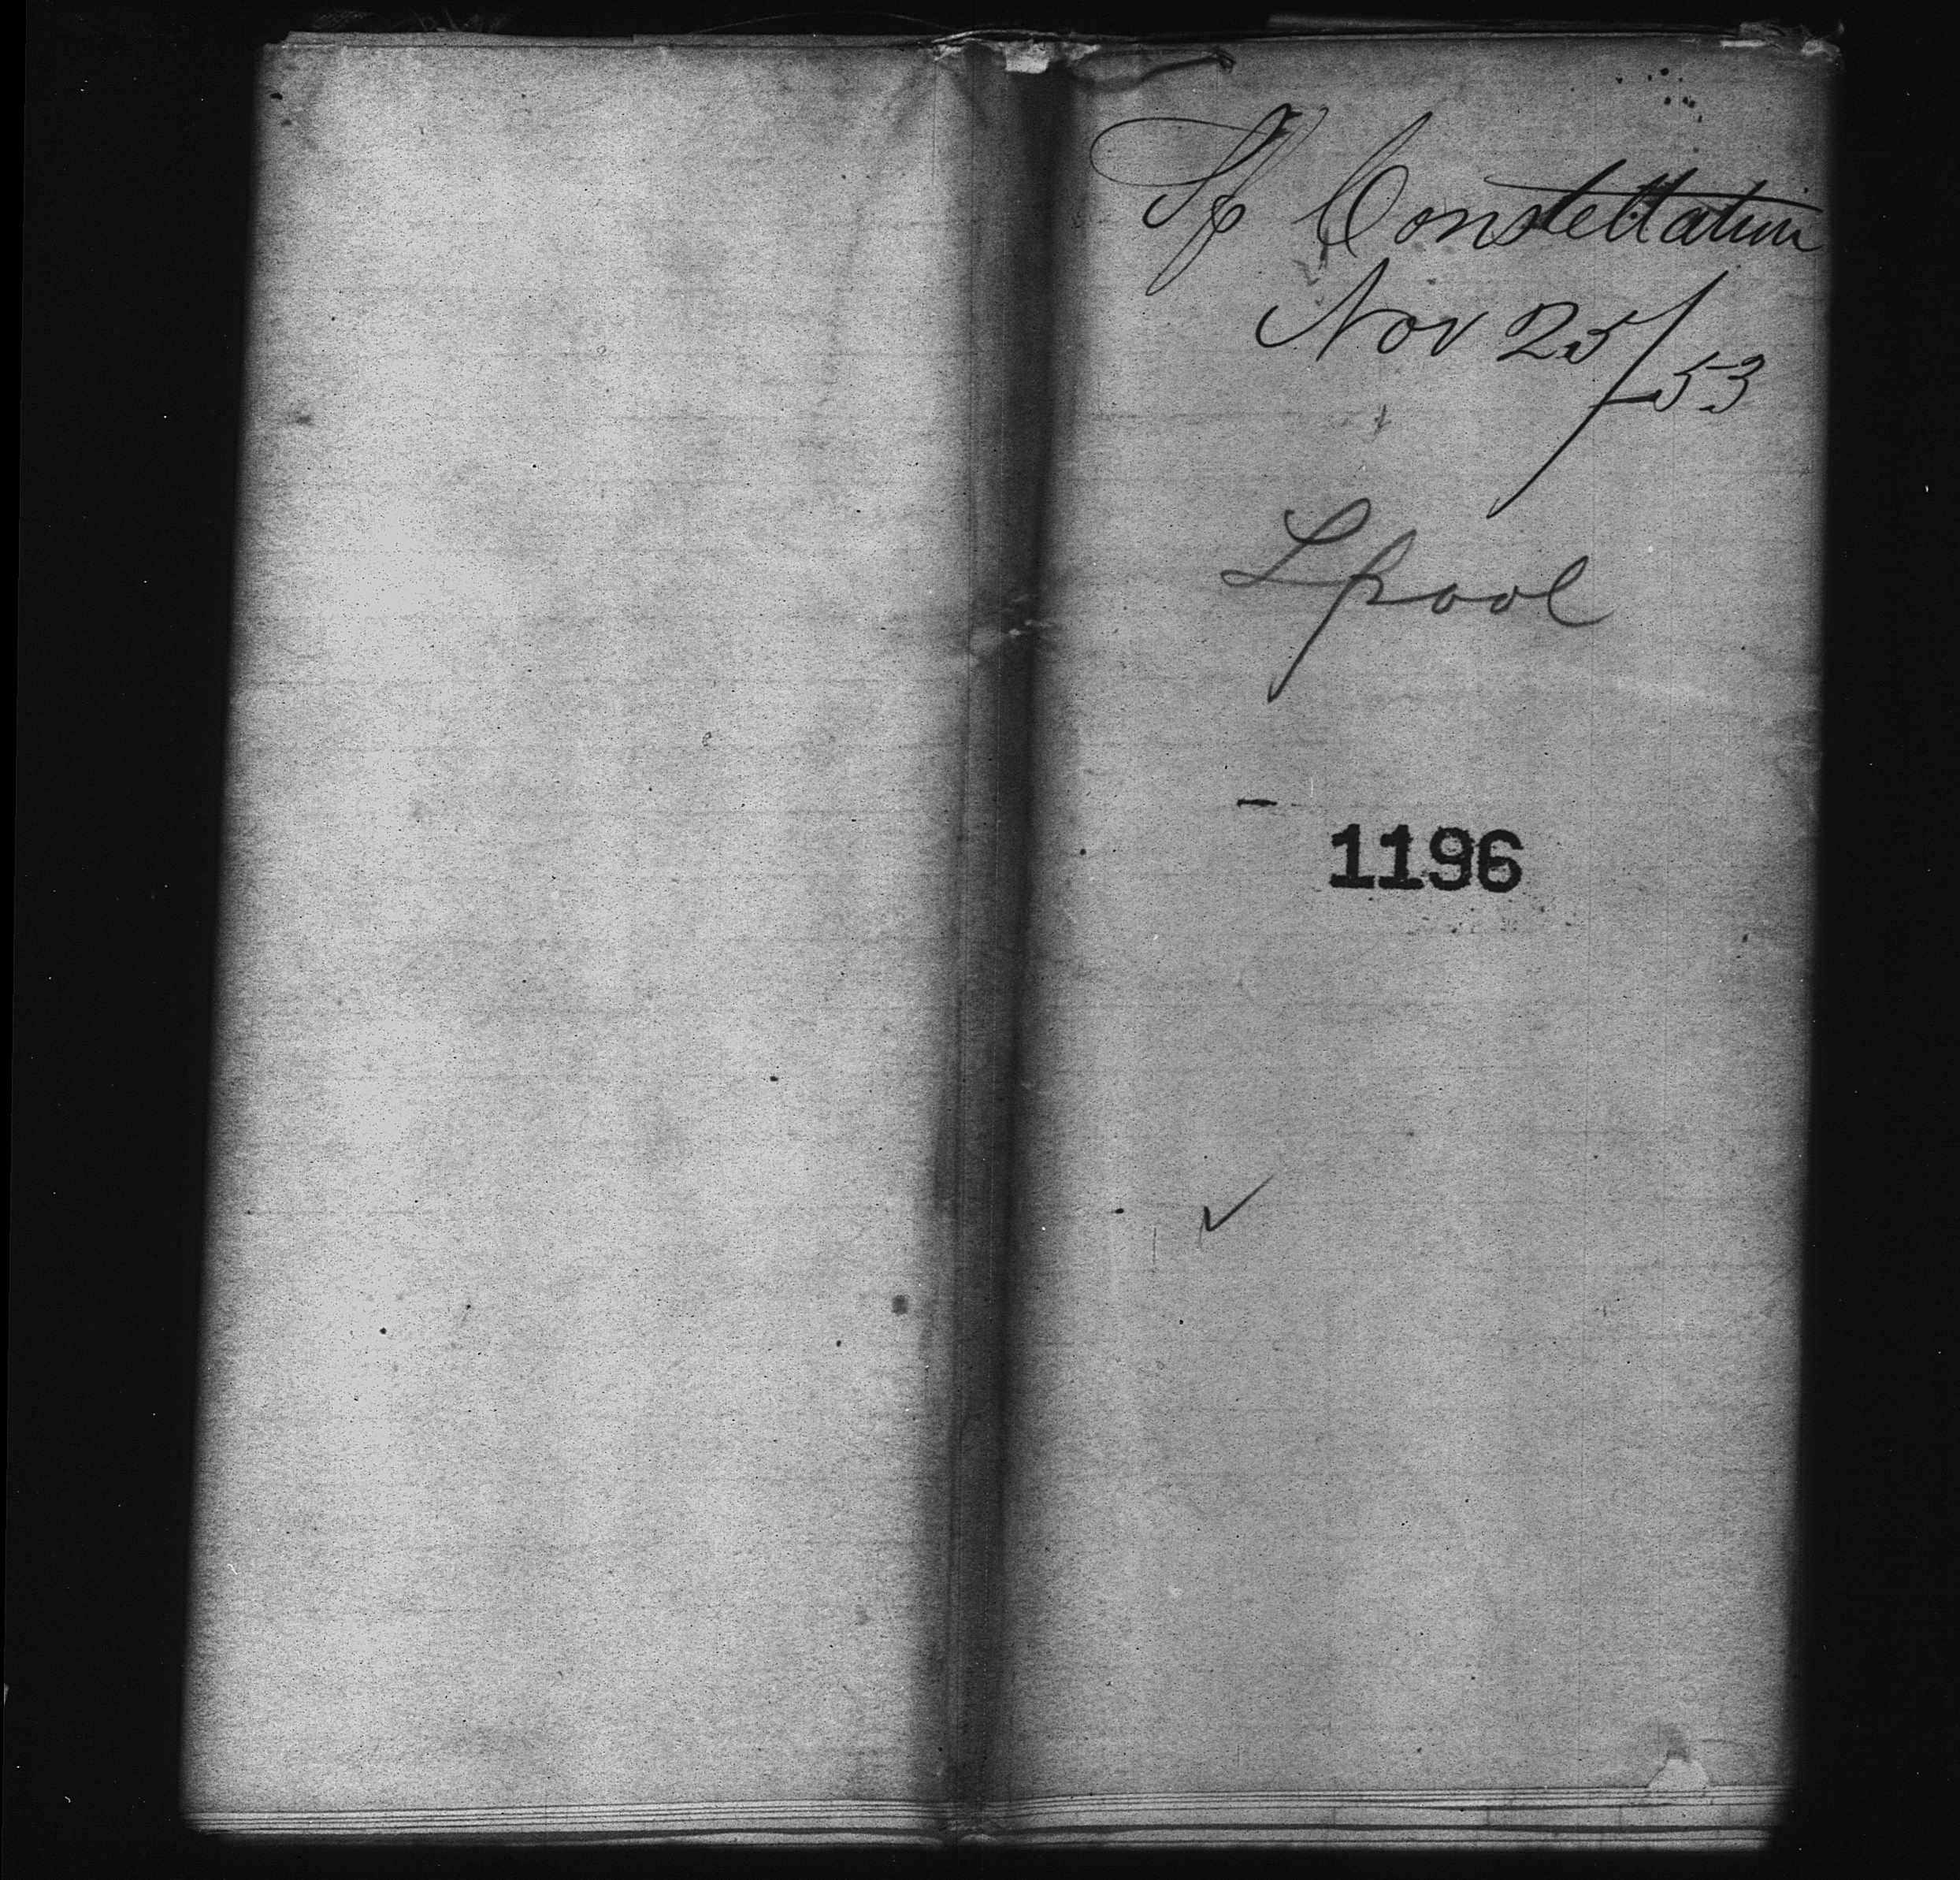 Sp Constellation
Nov 25/53
Lpool
1196